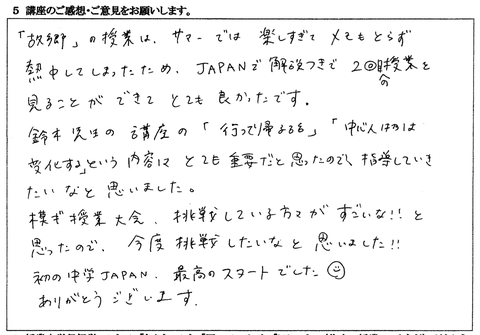 5 講座のご感想・ご意見をお願いします。
「故郷」の授業は、サマーでは 楽しすぎて メモもとらず
熱中してしまったため、JAPANで 解説つきで 2回目の授業を
見ることが できて とても 良かったです。
鈴木先生の 講座の 「行って帰る
変化する」という 内容は とても 重要だと思ったので、指導していき
たいなと 思いました。
模ギ授業大会、挑戦している方々が すごいな!! と
思ったので、今度 挑戦したいなと 思いました!!
初の中学JAPAN、最高のスタートでした
ありがとうございます。